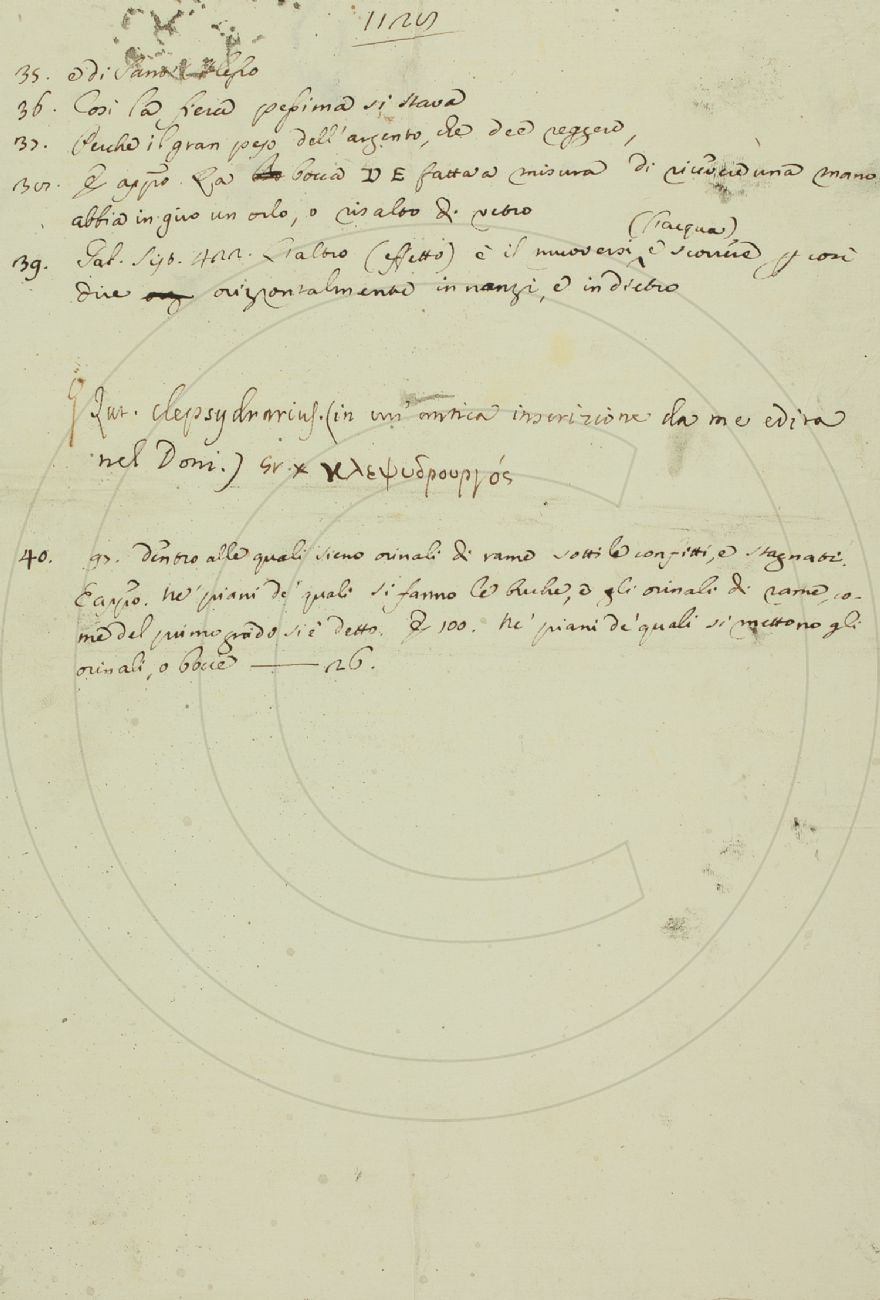 35. e di
36. Così la fiera pessima si stava
37. Perche il gran peso dell'argento, che dee reggere,
E appo. La bocca DE fatta a misura di ricevere una mano
abbia in giro un orlo, o risalto di vetro
(l'acqua)
39. Gal. Sist. 422. L'altro (effetto) è il muoversi, e scorrere p così
dire orizzontalmente innanzi, e indietro
Lat. clepsydrarius. (in un'antica inscrizione da me edita
nel Doni.) Gr. κλεψυδρουργός
40. 97. Dentro alle quali sieno orinali di rame sottile confitti, e stagnati.
E appo. Ne' piani de' quali si fanno le buche, e gli orinali di rame, co-
me del primo modo si è detto. E 100. Ne' piani de' quali si mettono gli
orinali, o bocce — 26.